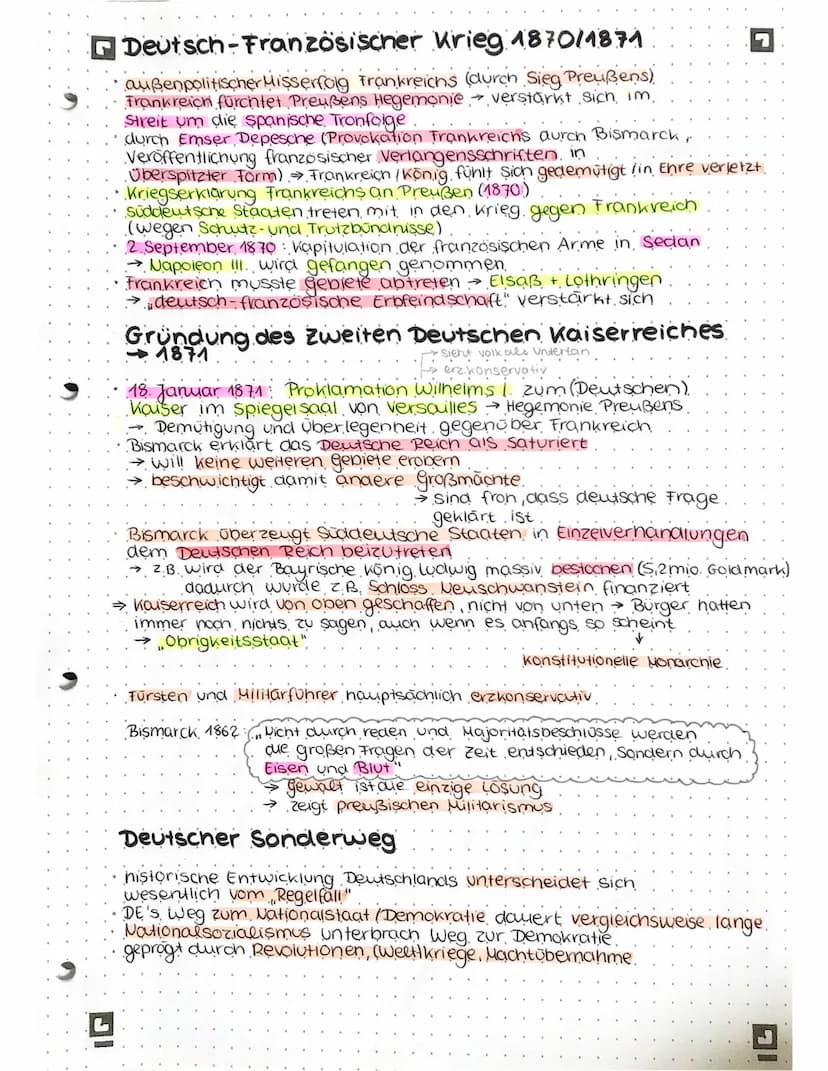 Deutsch-Französischer Krieg 1870/1871
· außenpolitischer Misserfolg Frankreichs (durch Sieg Preußens)
· Frankreich fürchtet Preußens Hegemonie → verstärkt sich im
Streit um die spanische Tronfolge
· durch Emser Depesche (Provokation Frankreichs durch Bismarck,
Veröffentlichung französischer Verlangensschriften in
überspitzter Form) → Frankreich / König fühlt sich gedemütigt / in Ehre verletzt
· Kriegserklärung Frankreichs an Preußen (1870)
· süddeutsche Staaten treten mit in den Krieg gegen Frankreich
(wegen Schutz- und Trutzbündnisse)
· 2. September 1870: Kapitulation der französischen Arme in Sedan
→ Napoleon III. wird gefangen genommen
· Frankreich musste Gebiete abtreten → Elsaß + Lothringen
→ „deutsch-französische Erbfeindschaft" verstärkt sich
Gründung des Zweiten Deutschen Kaiserreiches
→ 1871
→ sieht Volk als Untertan
→ erzkonservativ
· 18. Januar 1871: Proklamation Wilhelms I. zum (Deutschen)
Kaiser im Spiegelsaal von Versailles → Hegemonie Preußens
→ Demütigung und Überlegenheit gegenüber Frankreich
· Bismarck erklärt das Deutsche Reich als saturiert
→ will keine weiteren Gebiete erobern
→ beschwichtigt damit andere Großmächte
→ sind froh, dass deutsche Frage
geklärt ist
· Bismarck überzeugt Süddeutsche Staaten in Einzelverhandlungen
dem Deutschen Reich beizutreten
→ z.B. wird der Bayrische König Ludwig massiv bestochen (5,2mio. Goldmark)
dadurch wurde z.B. Schloss Neuschwanstein finanziert
⇒ Kaiserreich wird von oben geschaffen, nicht von unten → Bürger hatten
immer noch nichts zu sagen, auch wenn es anfangs so scheint
→ „Obrigkeitsstaat"
↓
Konstitutionelle Monarchie
· Fürsten und Militärführer hauptsächlich erzkonservativ
Bismarck 1862: „Nicht durch reden und Majoritätsbeschlüsse werden
die großen Fragen der Zeit entschieden, sondern durch
Eisen und Blut"
→ Gewalt ist die einzige Lösung
→ zeigt preußischen Militarismus
Deutscher Sonderweg
· historische Entwicklung Deutschlands unterscheidet sich
wesentlich vom „Regelfall"
· DE's Weg zum Nationalstaat / Demokratie dauert vergleichsweise lange
· Nationalsozialismus unterbrach Weg zur Demokratie
· geprägt durch Revolutionen, (Welt)kriege, Machtübernahme